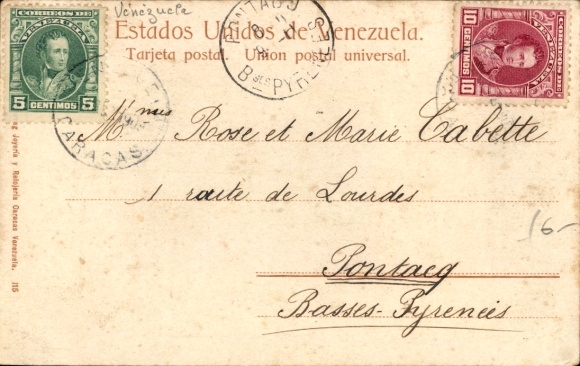 Venezuela
CORREOS DE VENEZUELA
5 CENTIMOS 5
CARACAS
PONTACQ
Bses PYRENEES
10 CENTIMOS 10
Estados Unidos de Venezuela.
Tarjeta postal. Union postal universal.
Mmes Rose et Marie Cabette
1 route de Lourdes
Pontacq
Basses-Pyrenées
16-
Joyería y Relojería Caracas Venezuela. 115